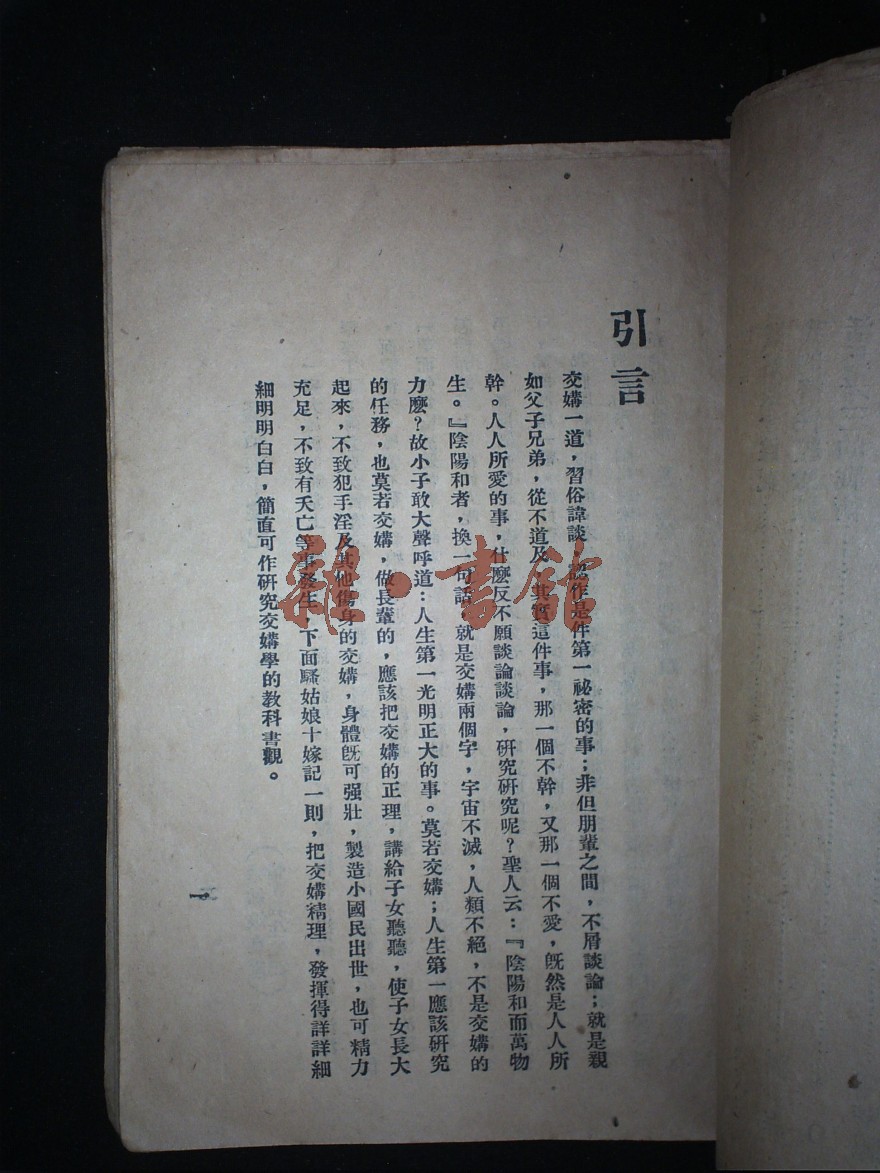 引言
交媾一道，習俗諱談，認作是件第一祕密的事；非但朋輩之間，不屑談論；就是親
如父子兄弟，從不道及，其實這件事，那一個不幹，又那一個不愛，既然是人人所
幹。人人所愛的事，什麼反不願談論談論，研究研究呢？聖人云：『陰陽和而萬物
生。』陰陽和者，換一句話，就是交媾兩個字，宇宙不滅，人類不絕，不是交媾的
力麼？故小子敢大聲呼道：人生第一光明正大的事。莫若交媾；人生第一應該研究
的任務，也莫若交媾，做長輩的，應該把交媾的正理，講給子女聽聽，使子女長大
起來，不致犯手淫及其他傷身的交媾，身體既可强壯，製造小國民出世，也可精力
充足，不致有夭亡等事發生，下面騷姑娘十嫁記一則，把交媾精理，發揮得詳詳細
細明明白白，簡直可作研究交媾學的教科書觀。
一
雜·書館